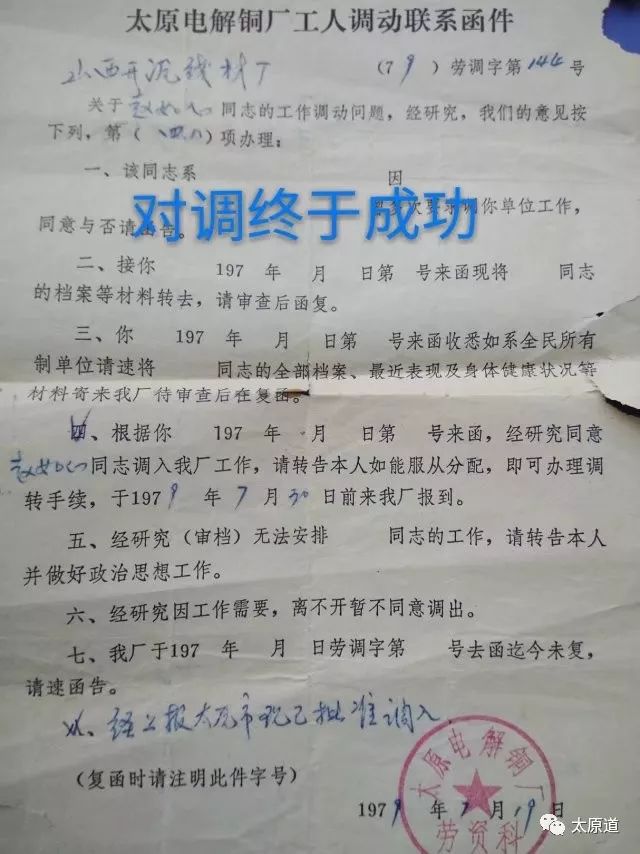 太原电解铜厂工人调动联系函件
山西开泥线材厂
(79)劳调字第144号
关于赵如心同志的工作调动问题，经研究，我们的意见按
下列，第(四.八)项办理：
一、该同志系 因
对调终于成功
要求调你单位工作，
同意与否请函告。
二、接你 197 年 月 日第 号来函现将 同志
的档案等材料转去，请审查后函复。
三、你 197 年 月 日第 号来函收悉如系全民所有
制单位请速将 同志的全部档案、最近表现及身体健康状况等
材料寄来我厂待审查后在复函。
四、根据你 197 年 月 日第 号来函，经研究同意
赵如心同志调入我厂工作，请转告本人如能服从分配，即可办理调
转手续，于1979年7月30日前来我厂报到。
五、经研究（审档）无法安排 同志的工作，请转告本人
并做好政治思想工作。
六、经研究因工作需要，离不开暂不同意调出。
七、我厂于197 年 月 日劳调字第 号去函迄今未复，
请速函告。
八、经上报太原市现已批准调入.
（复函时请注明此件字号）
太原电解铜厂
劳资科
1979年7月19日
太原道